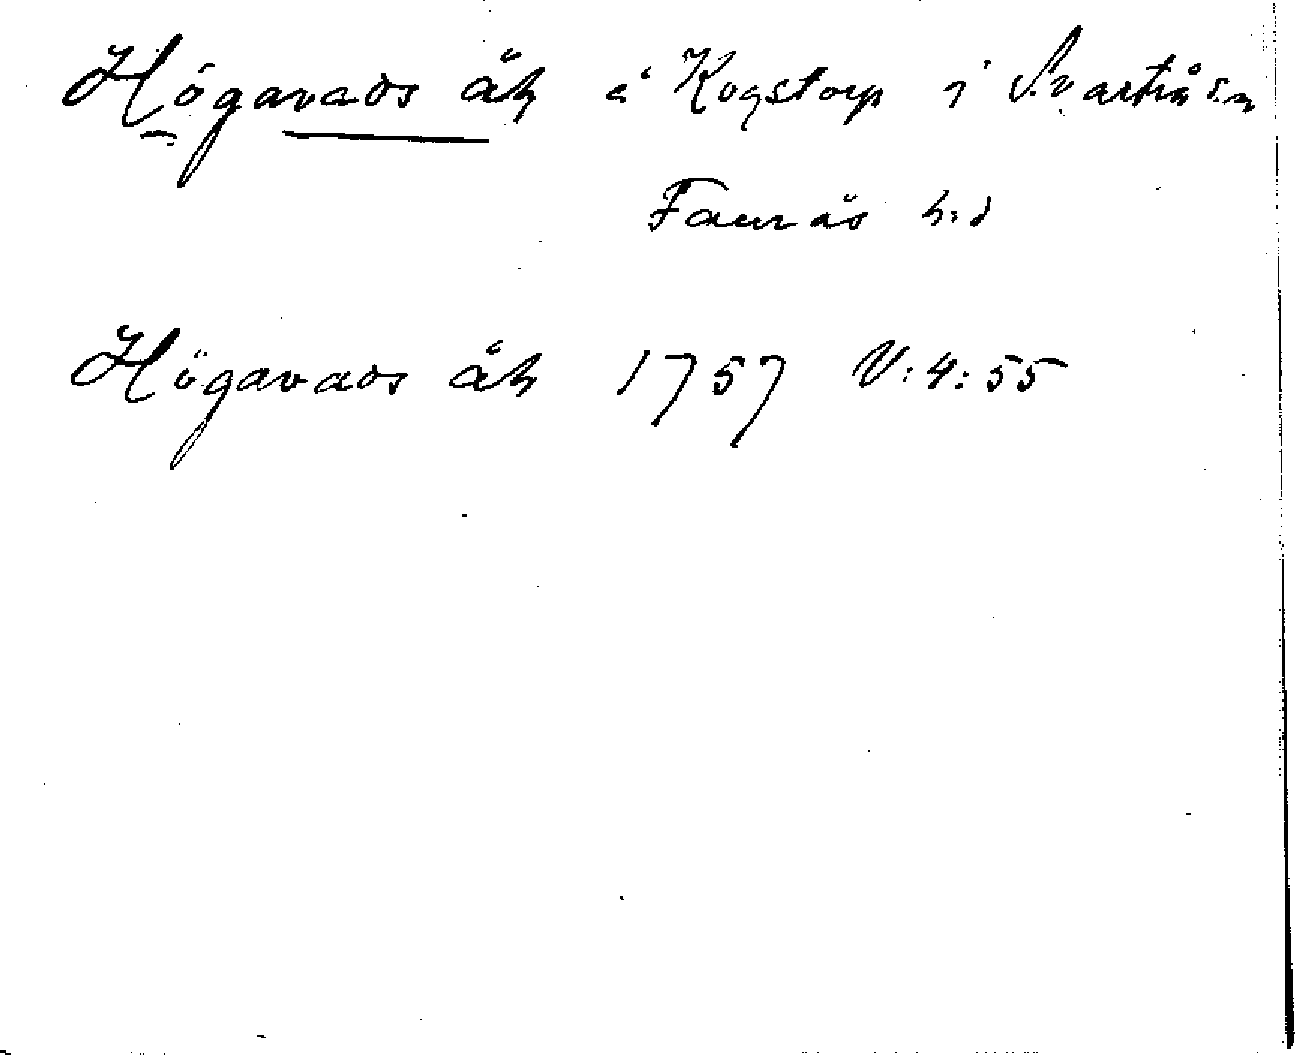 Högavads åk å Kogstorp i Svartrå s:n
Faurås h:d
Högavads åk 1757 V:4:55